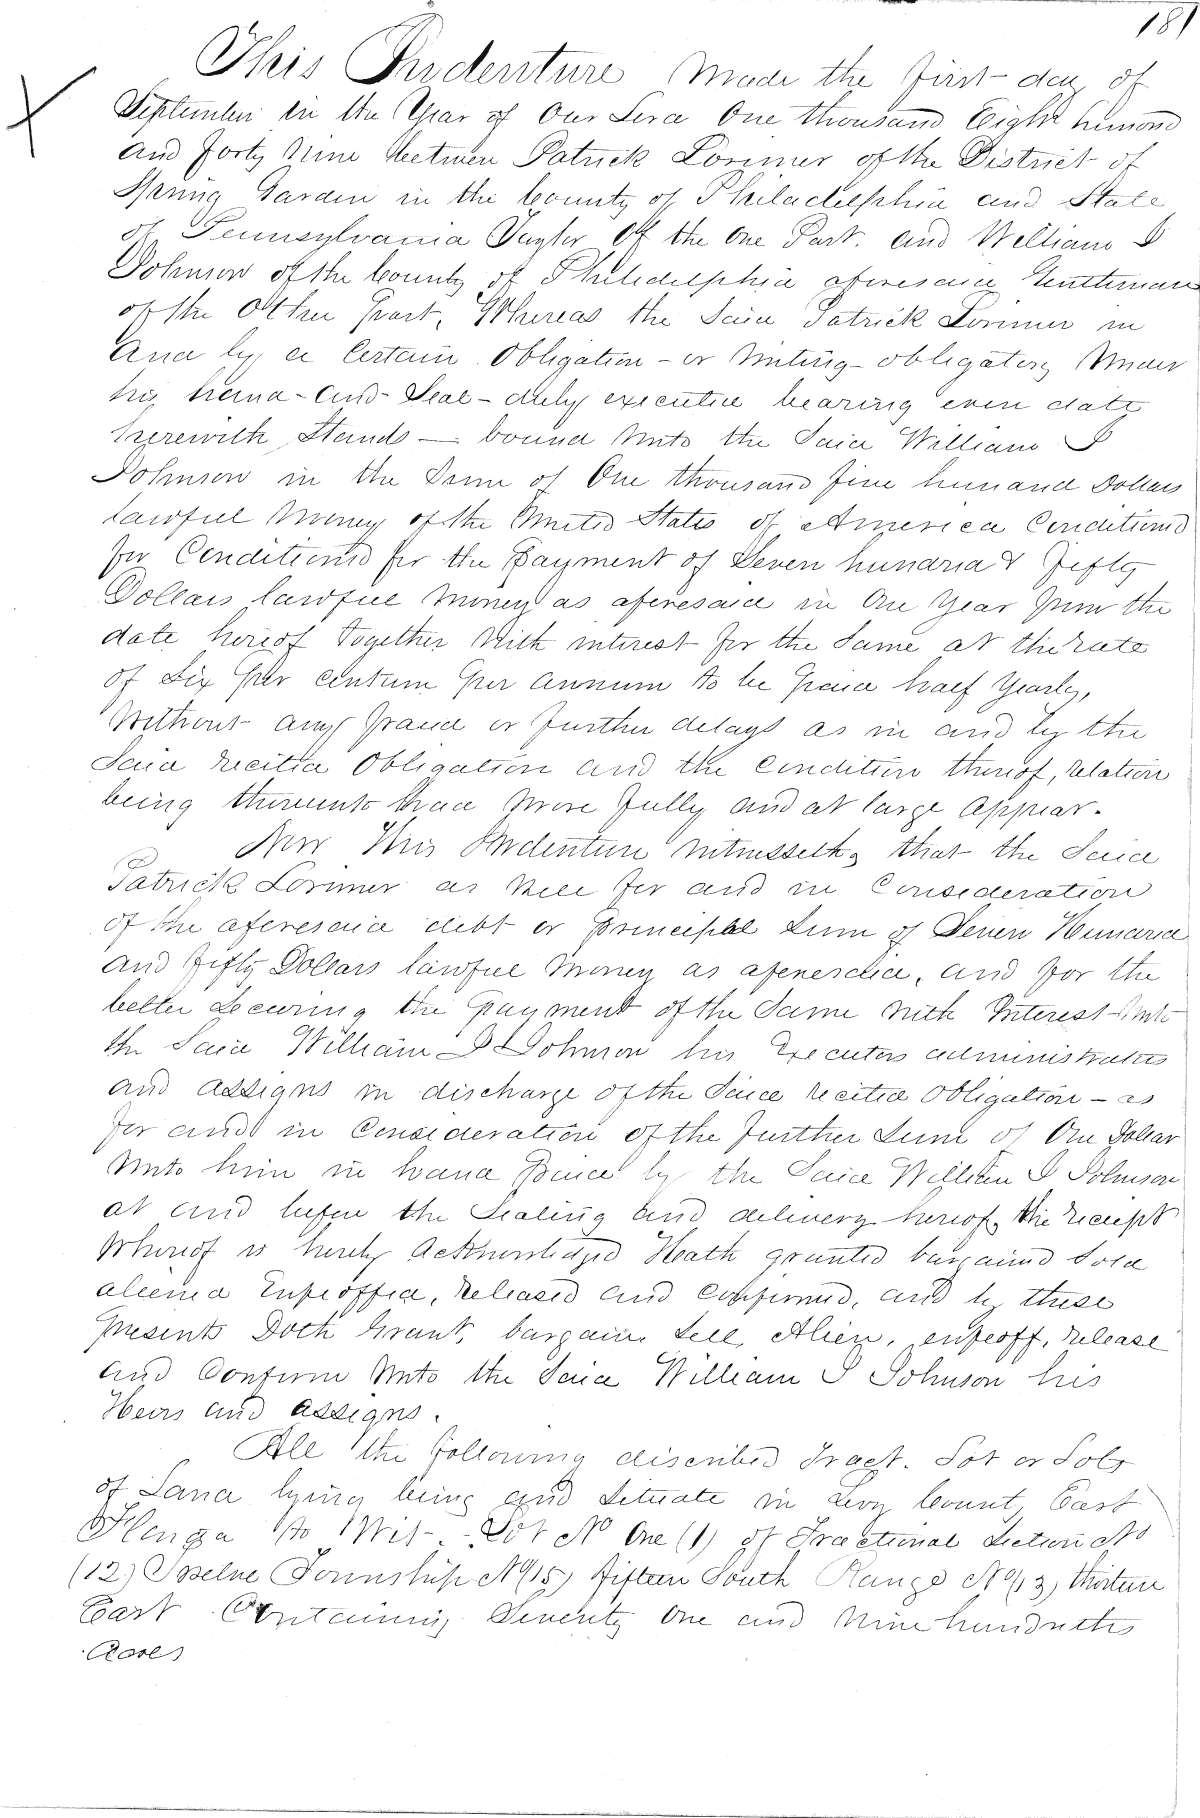 181
This Indenture Made the first day of
September in the Year of Our Lord One thousand Eight hundred
and forty Nine between Patrick Lorimer of the District of
Spring Garden in the County of Philadelphia and State
of Pennsylvania Taylor Of the One Part. and William I
Johnson of the County of Philadelphia aforesaid Gentleman
of the Other Part. Whereas the Said Patrick Lorimer in
And by a Certain Obligation - or Writing - obligatory Under
his hand - and - Seal - duly executed bearing even date
herewith Stands — bound Unto the Said William I
Johnson in the Sum of One thousand five hundred Dollars
lawful Money of the United States of America Conditioned
for Conditioned for the Payment of Seven hundred & Fifty
Dollars lawful Money as aforesaid in One Year from the
date hereof together With interest for the Same at the rate
of Six per centum per annum to be paid half Yearly,
Without any fraud or further delays as in and by the
Said recited Obligation and the Condition thereof, relation
being thereunto had More fully and at large appear.
Now This Indenture Witnesseth, that the Said
Patrick Lorimer as Well for and in Consideration
of the aforesaid debt or Principal Sum of Seven Hundred
and fifty Dollars lawful Money as aforesaid, and for the
better Securing the Payment of the Same With Interest Unto
the Said William I Johnson his Executors administrators
and assigns in discharge of the Said recited Obligation - as
for and in Consideration of the further Sum of One Dollar
Unto him in hand Paid by the Said William I Johnson
at and before the Sealing and delivery hereof, the receipt
Whereof is hereby Acknowledged Hath granted bargained Sold
aliened Enfeoffed, released and Confirmed, and by these
Presents Doth Grant, bargain Sell, Alien, enfeoff, release
and Confirm Unto the Said William I Johnson his
Heirs and assigns.
All the following discribed Tract. Lot or Lots
of Land lying being and Situate in Levy County East
Florida to Wit - Lot No One (1) of Fractional Section No
(12) Twelve Township No (15) fifteen South Range No (13) thirteen
East Containing Seventy One and Nine hundreths
Acres